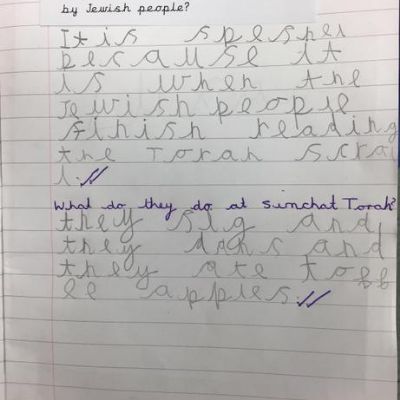 by Jewish people?
It is speshel
because it
is when the
Jewish people
finish reading
the Torah scral
l.
What do they do at Simchat Torah?
they sig and
they dans and
they ate toff
ee apples.